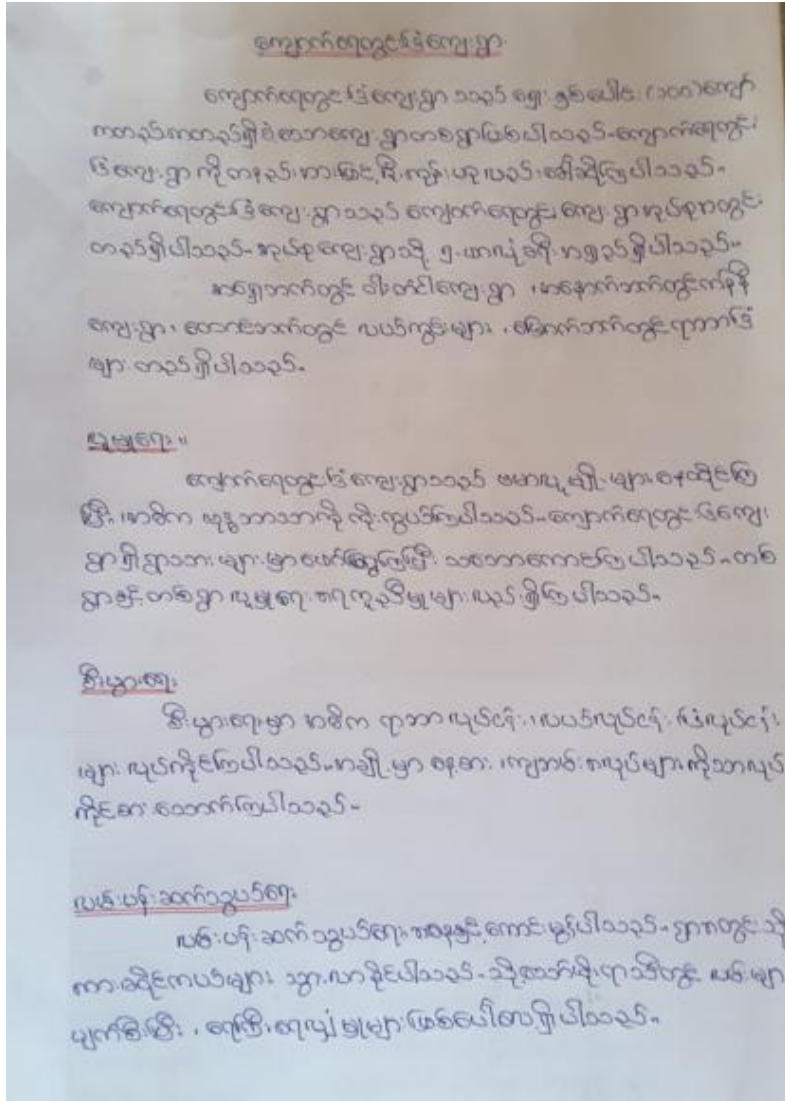 ကျောက်ရေတွင်းခြံကျေးရွာ
ကျောက်ရေတွင်းခြံကျေးရွာသည် ရှေးနှစ်ပေါင်း (၁၀၀)ကျော်
ကတည်ကတည်ရှိခဲ့သောကျေးရွာတစ်ရွာဖြစ်ပါသည်။ကျောက်ရေတွင်း
ခြံကျေးရွာကိုတနည်းအားဖြင့် ဟုလည်းခေါ်ဆိုကြပါသည်။
ကျောက်ရေတွင်းခြံကျေးရွာသည် ကျောက်ရေတွင်းကျေးရွာအုပ်စုတွင်
တည်ရှိပါသည်။အုပ်စုကျေးရွာသို့ ရှိပါသည်။
အရှေ့ဘက်တွင် ကျေးရွာ၊အနောက်ဘက်တွင်
ကျေးရွာ၊တောင်ဘက်တွင် လယ်ကွင်းများ၊မြောက်ဘက်တွင်ရာဘာခြံ
များတည်ရှိပါသည်။
လူမှုရေး။
ကျောက်ရေတွင်းခြံကျေးရွာသည် ဗမာလူမျိုးများနေထိုင်ကြ
ပြီး၊အဓိကဗုဒ္ဓဘာသာကိုကိုးကွယ်ကြပါသည်။ကျောက်ရေတွင်းခြံကျေး
ရွာရှိရွာသားများမှာဖော်ရွေကြပြီးသဘောကောင်းကြပါသည်။တစ်
ရွာနှင့်တစ်ရွာလူမှုရေးအရကူညီမှုများလည်းရှိကြပါသည်။
စီးပွားရေး
စီးပွားရေးမှာအဓိကရာဘာလုပ်ငန်း၊လယ်လုပ်ငန်း၊ခြံလုပ်ငန်း
များလုပ်ကိုင်ကြပါသည်။အချို့မှာနေ့စား၊ကျဘမ်းအလုပ်များကိုသာလုပ်
ကိုင်စားသောက်ကြပါသည်။
လမ်းပန်းဆက်သွယ်ရေး
လမ်းပန်းဆက်သွယ်ရေးအနေနှင့်ကောင်းမွန်ပါသည်။ရွာတွင်းသို့
ကား၊ဆိုင်ကယ်များသွားလာနိုင်ပါသည်။သို့သော်မိုးရာသီတွင် လမ်းများ
ပျက်စီးပြီး၊ရေကြီးရေလျှံမှုများဖြစ်ပေါ်လေ့ရှိပါသည်။